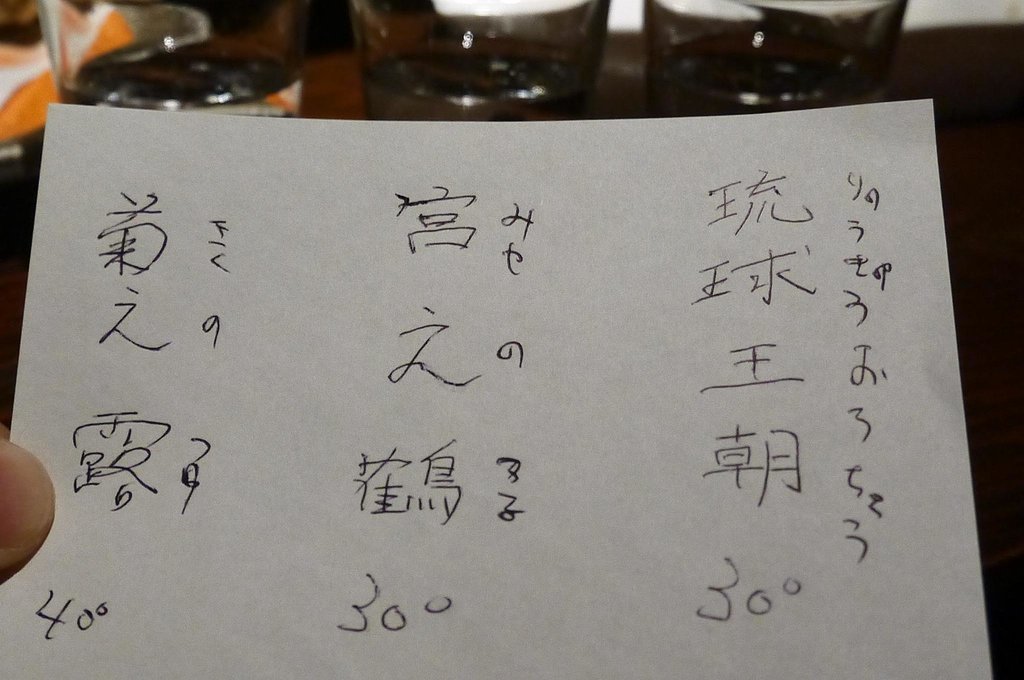 琉球王朝 30°
りゅうきゅうおうちょう
宮之鶴 30°
みやのつる
菊之露 40°
きくのつゆ